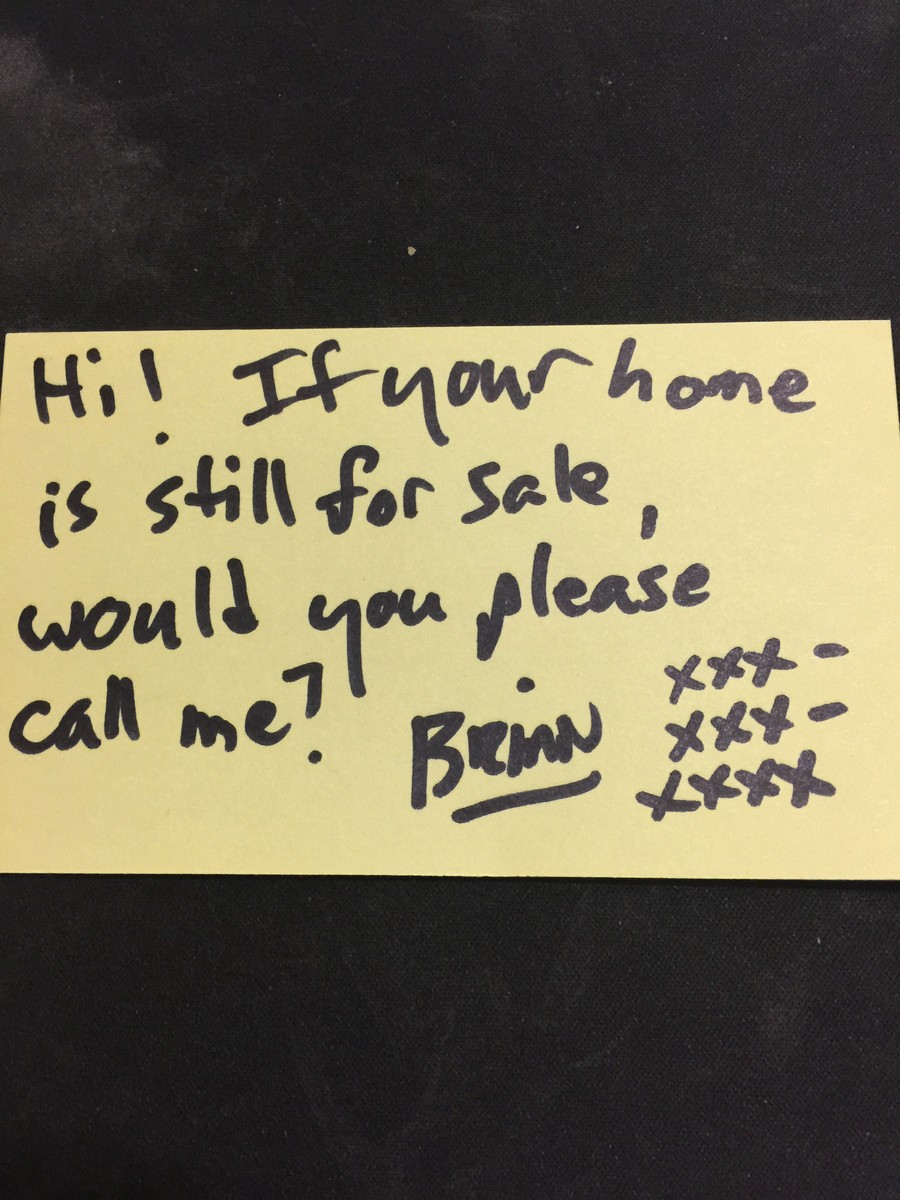 Hi! If your home
is still for sale,
would you please
call me?
BRIAN
xxx-
xxx-
xxxx